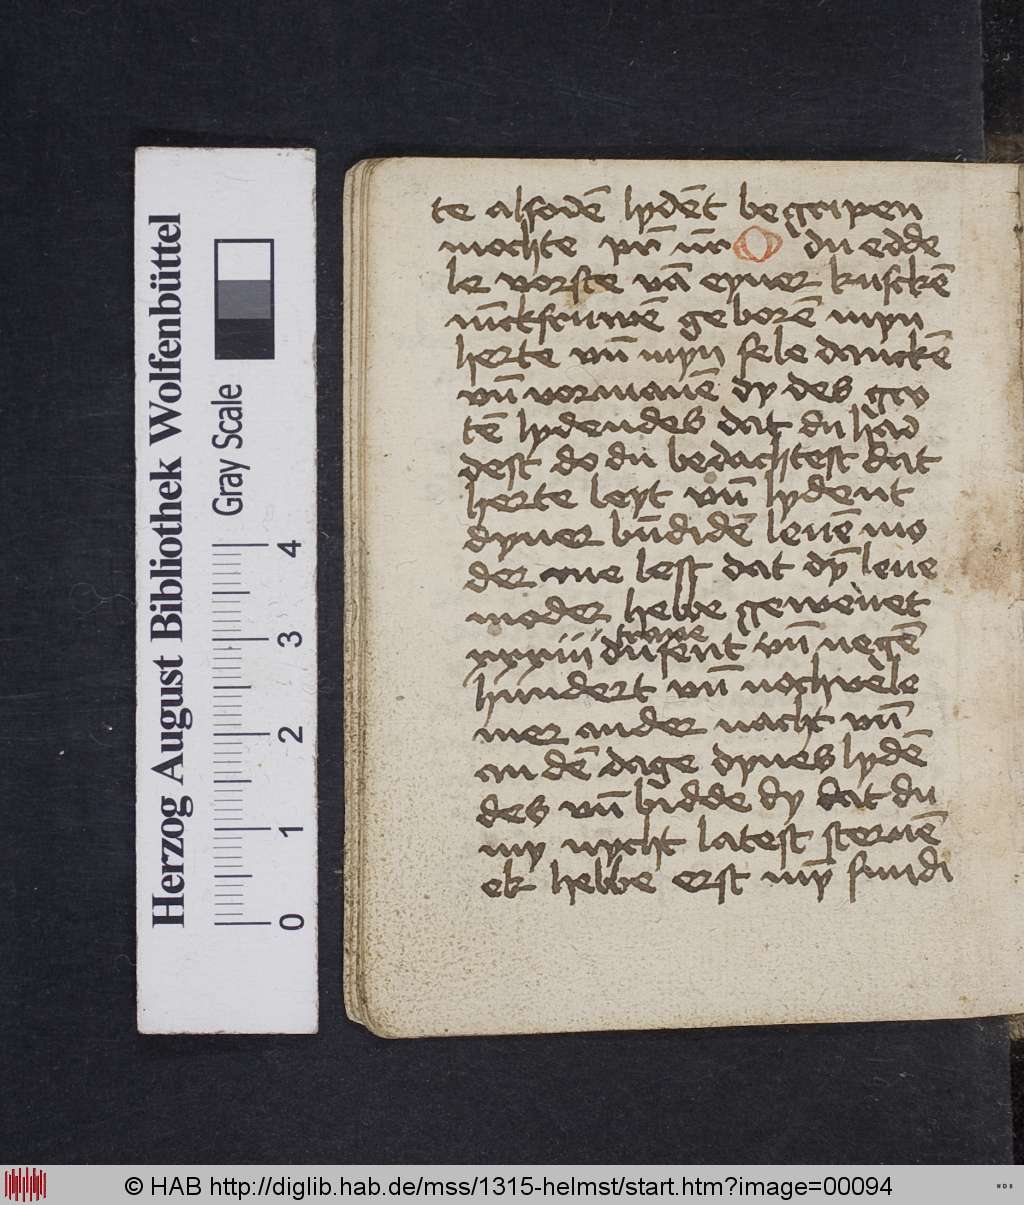 te alsodē lydēt begripen
mochte pr̄ nr̄ O du edde
le vorste vā eyner kusckē
iūckfruwē geborē myn
herte vn̄ myn sele danckē
vn̄ vormanē dy des gro
tē lydendes dat du had
dest do du bedachtest dat
herte leyt vn̄ lydent
dyner bn̄didē leuē mo
der me lest dat dȳ leue
moder hebbe gewenet
trane
xxxiii dusent vn̄ negē
hundert vn̄ noch vele
mer an der nacht vn̄
an dē dage dynes lydē
des vn̄ bidde dy dat du
my nycht latest steruē
ek hebbe erst mȳ sundi
Herzog August Bibliothek Wolfenbüttel
Gray Scale
0 1 2 3 4
© HAB http://diglib.hab.de/mss/1315-helmst/start.htm?image=00094